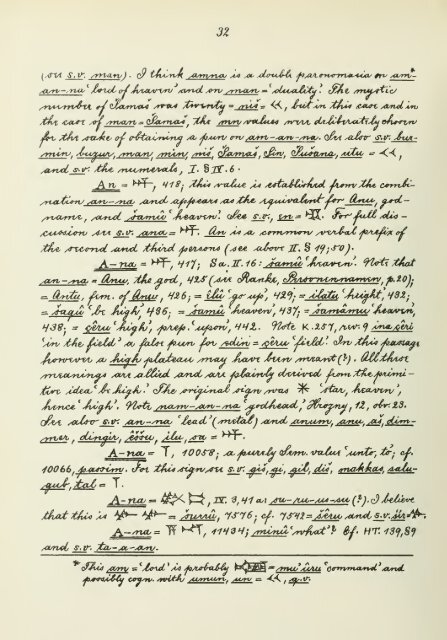 32
(.su s.v. man). I think amna is a double paronomasia on am*-
an-na 'lord of heaven' and on man = 'duality'. The mystic
number of Šamaš was twenty = niš = 𒎙, but in this case and in
the case of man = Šamaš, the mn values were deliberately chosen
for the sake of obtaining a pun on am-an-na. See also s.v. bur-
min, buzur, man, min, niš, Šamaš, Sin, Šušana, utu = 𒎙,
and s.v. the numerals, I. § IV. 6.
An = 𒀭, 418; this value is established from the combi-
nation an-na and appears as the equivalent for Anu, god-
name, and šamû 'heaven'. See s.v. in = For full dis-
cussion see s.v. ana = 𒀭. An is a common verbal prefix of
the second and third persons (see above II. § 19; 50).
A-na = 𒀭, 417; Sa. II. 16: šamû 'heaven'. Note that
an-na = Anu, the god, 425 (see Ranke, Personennamen, p. 20);
= Antu, fem. of Anu, 426; = êlû 'go up', 429; = ilatu 'height', 432;
= šaqû 'be high', 436; = šamû 'heaven', 437; = šamâmu 'heaven',
438; = çêru 'high', prep. 'upon', 442. Note K. 257, rev. 9 ina çêri
'in the field' a false pun for edin = çêru 'field'. In this passage
however a high plateau may have been meant (?). All these
meanings are allied and are plainly derived from the primi-
tive idea 'be high'. The original sign was 'star, heaven',
hence 'high'. Note nam-an-na 'godhead', Hrozny, 12, obv. 23.
See also s.v. an-na 'lead' (metal) and anum, anu, aš, dim-
mer, dingir, êššu, ilu, sa = 𒀭.
A-na = 𒁹, 10058; a purely Sem. value 'unto, to', cf.
10066, passim. For this sign see s.v. giš, gi, gil, diš, makkas, salu-
gub, tal = 𒁹.
A-na = IV. 3, 41a: su-ru-us-su (?). I believe
that this is = šurrû, 7576; cf. 7542 = šêru and s.v. šir =
A-na = 𒀀𒈾, 11434; minû 'what'? Cf. HT. 139, 89
and s.v. ta-a-an.
* This am = 'lord' is probably = mu'ûru 'command' and
possibly cogn. with umun, un = 𒌋𒌋, q.v.